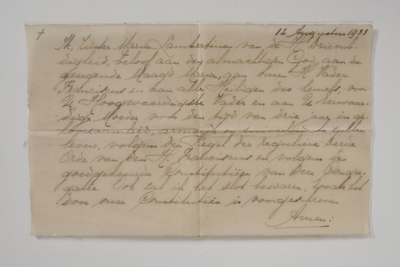 † 12 Augustus 1933
Ik, Zuster Maria Lambertina van de H. Drievul-
digheid, beloof aan den almachtigen God, aan de
Maagd Maria, aan onzen H. Vader
Franciscus en aan alle Heiligen des hemels, voor
U Hoogwaardigste Vader en aan U Eerwaar-
dige Moeder voor den tijd van drie jaar in ge-
hoorzaamheid, armoede en zuiverheid te zullen
leven, volgens den Regel der Reguliere derde
Orde van den H. Franciscus en volgens de
goedgekeurde Constitutiën van deze Congre-
gatie en zal in het slot bewaren, zooals het
door onze Constitutiën is voorgeschreven
Amen.